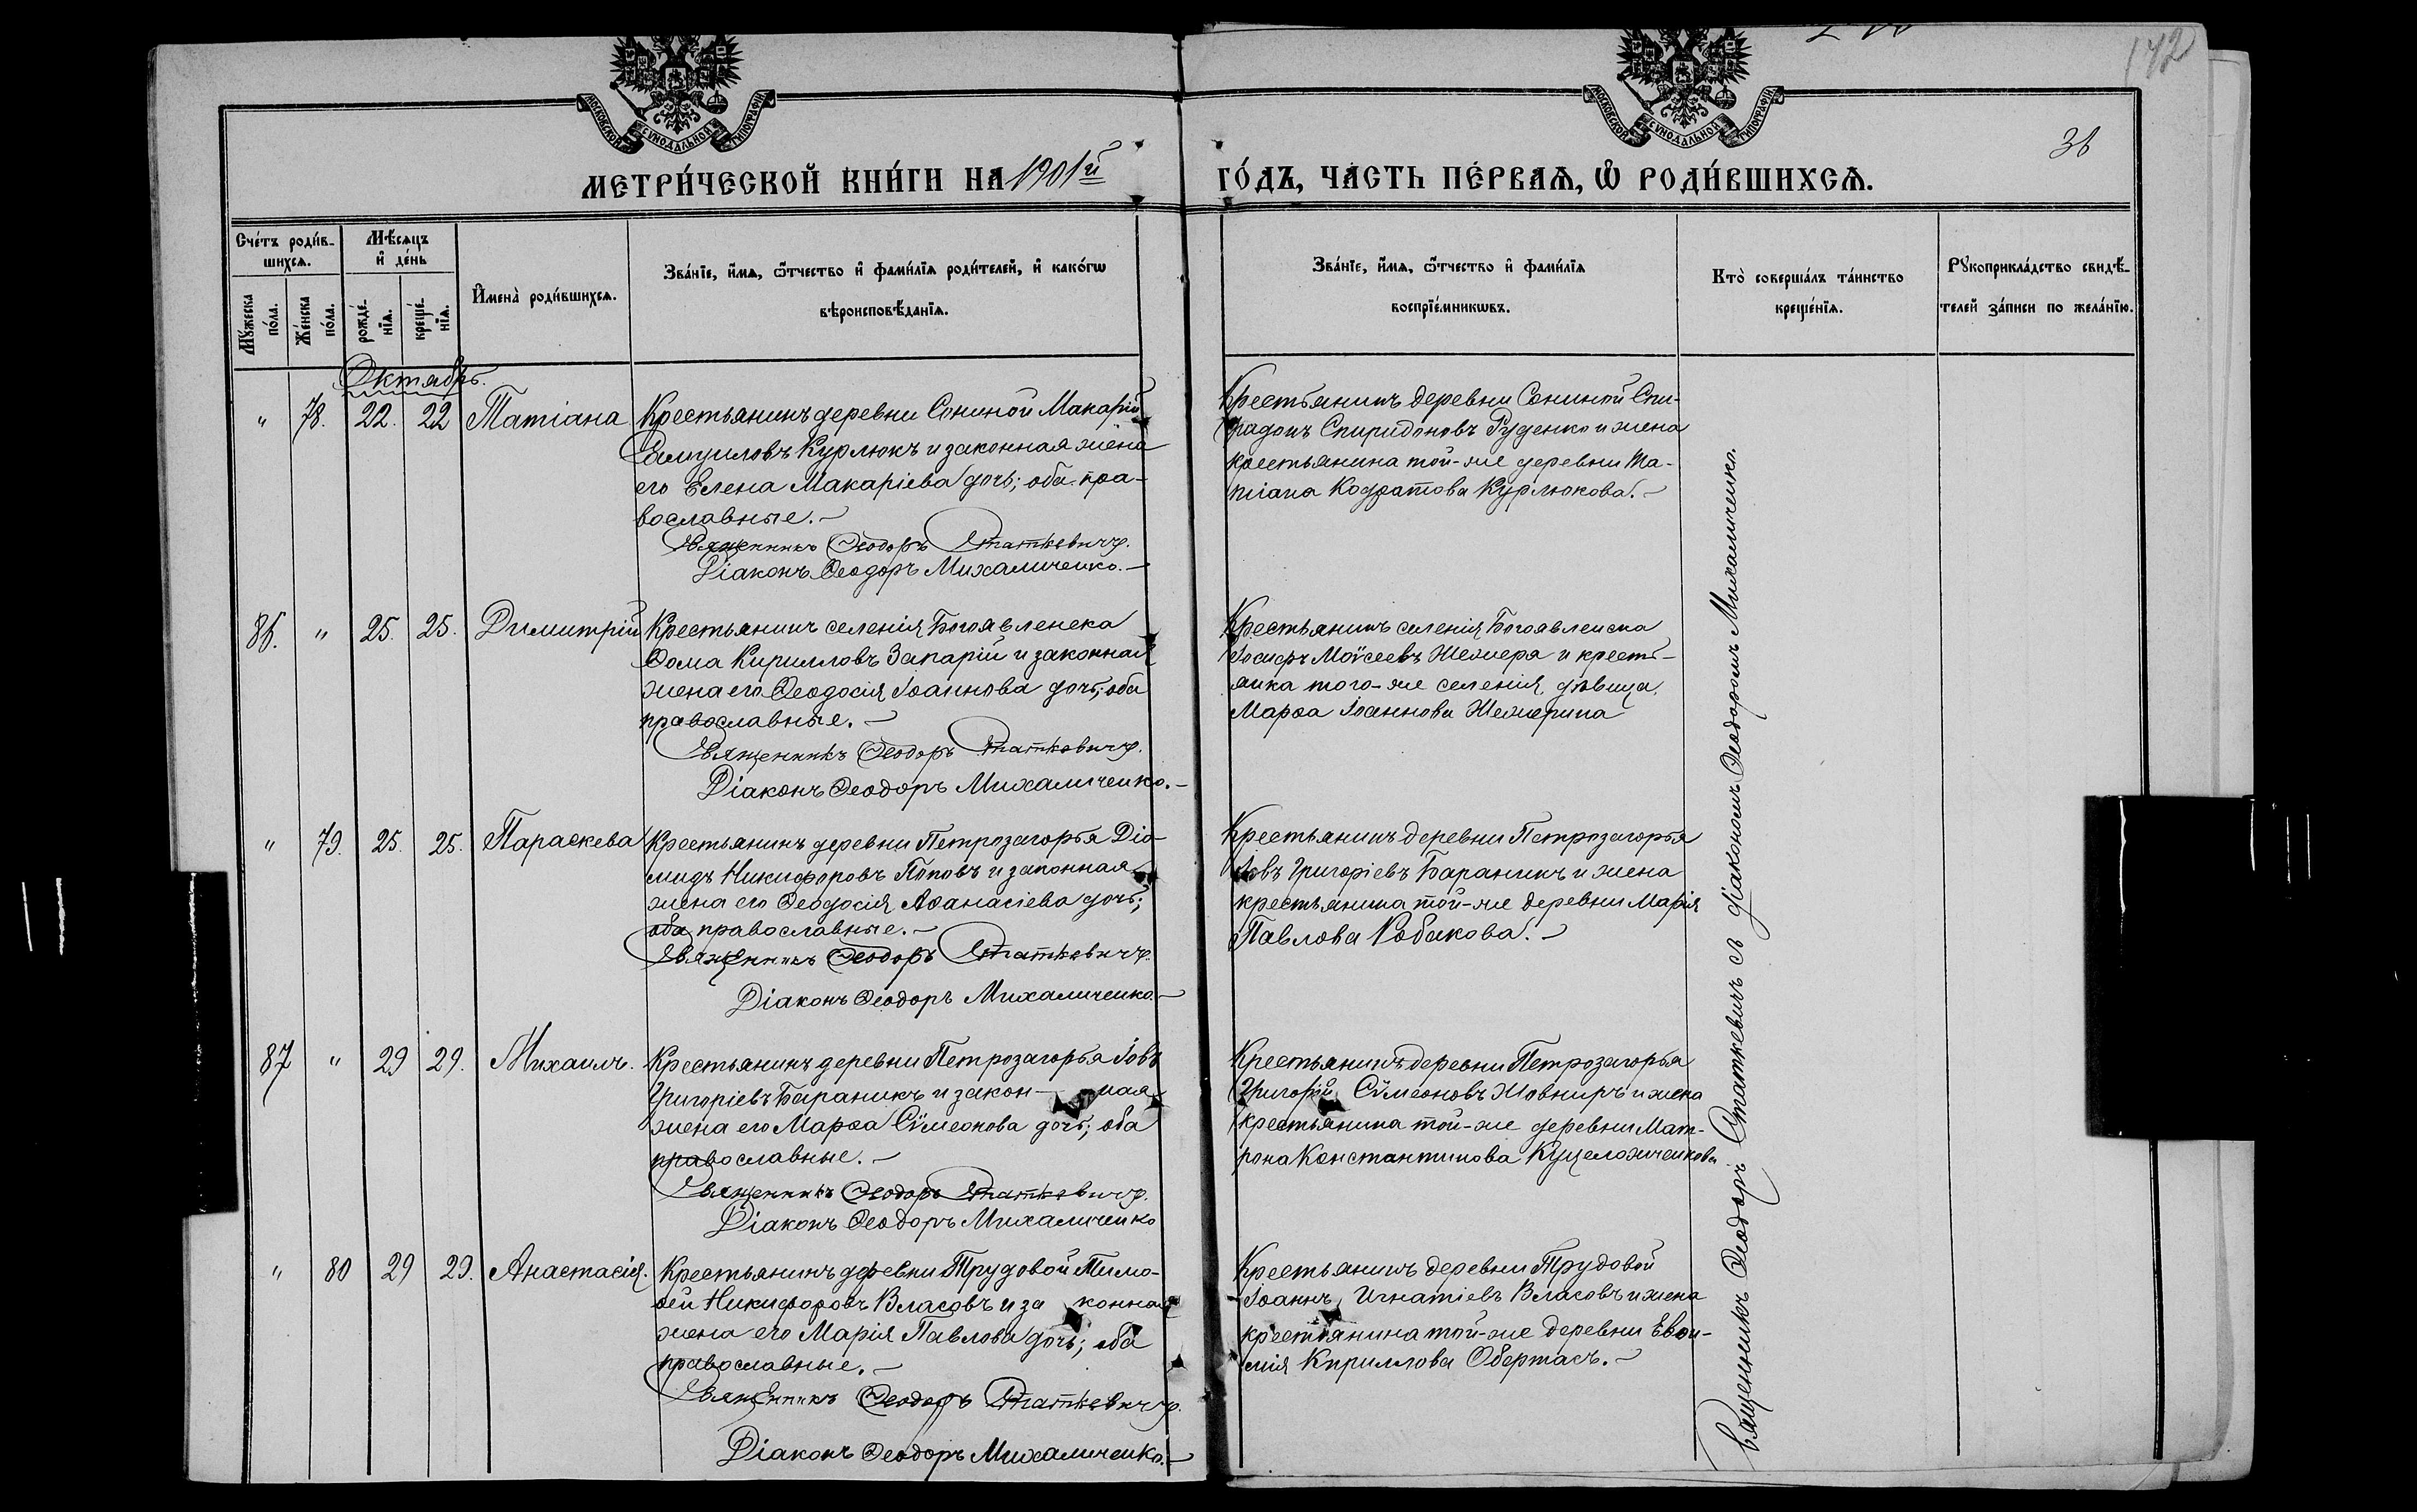 142
36
МОСКОВСКОЙ СѴНОДАЛЬНОЙ ТИПОГРАФІИ
МОСКОВСКОЙ СѴНОДАЛЬНОЙ ТИПОГРАФІИ
МЕТРИ́ЧЕСКОЙ КНИ́ГИ НА 1901й ГО́ДЪ, ЧА́СТЬ ПЕ́РВАѦ, Ѡ РОДИ́ВШИХСѦ.
Сче́тъ роди́в-
шихсѧ.
Мꙋ́жеска
по́ла.
Же́нска
по́ла.
Мѣ́сѧцъ
и҆ де́нь
рожде́-
нїѧ.
креще́-
нїѧ.
И҆мена̀ роди́вшихсѧ.
Зва́нїе, и҆́мѧ, ѻ҆́тчество и҆ фами́лїѧ роди́телей, и҆ како́гѡ
вѣроисповѣ́данїѧ.
Зва́нїе, и҆́мѧ, ѻ҆́тчество и҆ фами́лїѧ
воспрїе́мникѡвъ.
Кто̀ соверша́лъ та́инство
креще́нїѧ.
Рꙋкоприкла́дство свидѣ́-
телей за́писи по жела́нїю.
Октябрь.
" 78. 22. 22 Татіана
Крестьянинъ деревни Сониной Макарій
Самуиловъ Курлюкъ и законная жена
его Елена Макаріева дочь; оба пра-
вославные.
Священникъ Ѳеодоръ Статкевичъ.
Діаконъ Ѳеодоръ Михаличенко.
Крестьянинъ деревни Сониной Спи-
ридонъ Спиридоновъ Руденко и жена
крестьянина той-же деревни Та-
тіана Кодратова Курлюкова.
86. " 25. 25. Димитрій
Крестьянинъ селенія Богоявленска
Ѳома Кирилловъ Запарій и законная
жена его Ѳеодосія Іоаннова дочь; оба
православные.
Священникъ Ѳеодоръ Статкевичъ.
Діаконъ Ѳеодоръ Михаличенко.
Крестьянинъ селенія Богоявленска
Іосифъ Моѵсеевъ Жежера и кресть-
янка того-же селенія, дѣвица,
Марѳа Іоаннова Жежерина
" 79. 25. 25. Параскева
Крестьянинъ деревни Петрозагорья Діо-
мидъ Никифоровъ Поповъ и законная
жена его Ѳеодосія Аѳанасіева дочь;
оба православные.
Священникъ Ѳеодоръ Статкевичъ.
Діаконъ Ѳеодоръ Михаличенко.
Крестьянинъ деревни Петрозагорья
Іовъ Григоріевъ Бараникъ и жена
крестьянина той-же деревни Марія
Павлова Кобакова.
87 " 29 29. Михаилъ.
Крестьянинъ деревни Петрозагорья Іовъ
Григоріевъ Бараникъ и закон- ная
жена его Марѳа Сѵмеонова дочь; оба
православные.
Священникъ Ѳеодоръ Статкевичъ.
Діаконъ Ѳеодоръ Михаличенко
Крестьянинъ деревни Петрозагорья
Григорій Сѵмеоновъ Жовниръ и жена
крестьянина той-же деревни Мат-
рона Константинова
" 80 29 29. Анастасія.
Крестьянинъ деревни Трудовой Тимо-
ѳей Никифоровъ Власовъ и за конная
жена его Марія Павлова дочь; оба
православные.
Священникъ Ѳеодоръ Статкевичъ.
Діаконъ Ѳеодоръ Михаличенко.
Крестьянинъ деревни Трудовой
Іоаннъ Игнатіевъ Власовъ и жена
крестьянина той-же деревни Евѳи-
мія Кириллова Обертасъ.
Священникъ Ѳеодоръ Статкевичъ съ діакономъ Ѳеодоромъ Михаличенко.